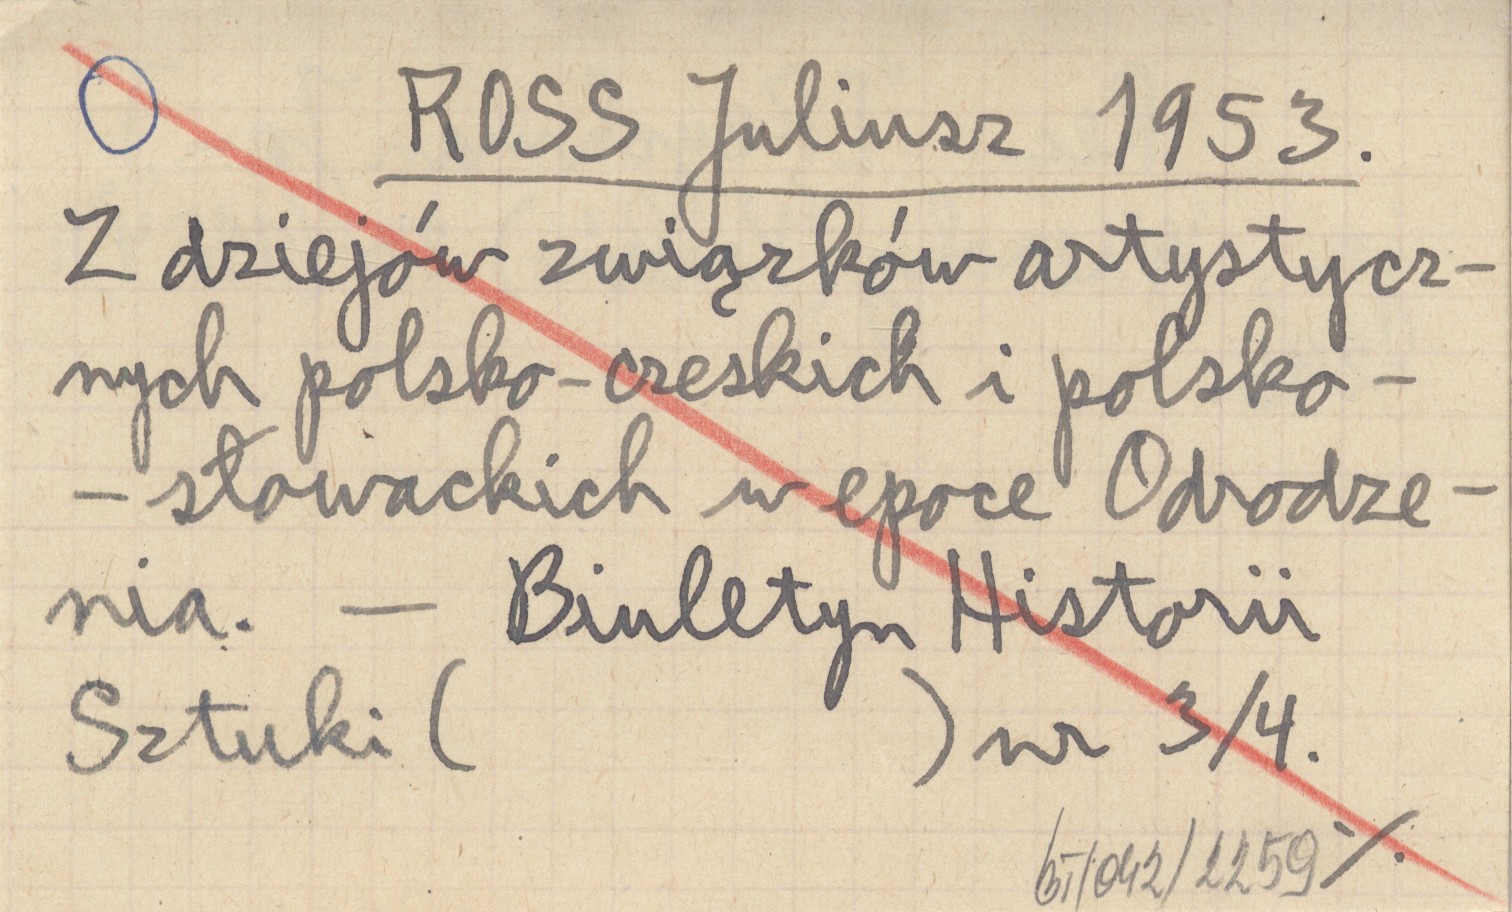 ROSS Juliusz 1953.
Z dziejów związków artystycz-
nych polsko-czeskich i polsko-
- słowackich w epoce Odrodze-
nia. — Biuletyn Historii
Sztuki ( ) nr 3/4.
/042/2259